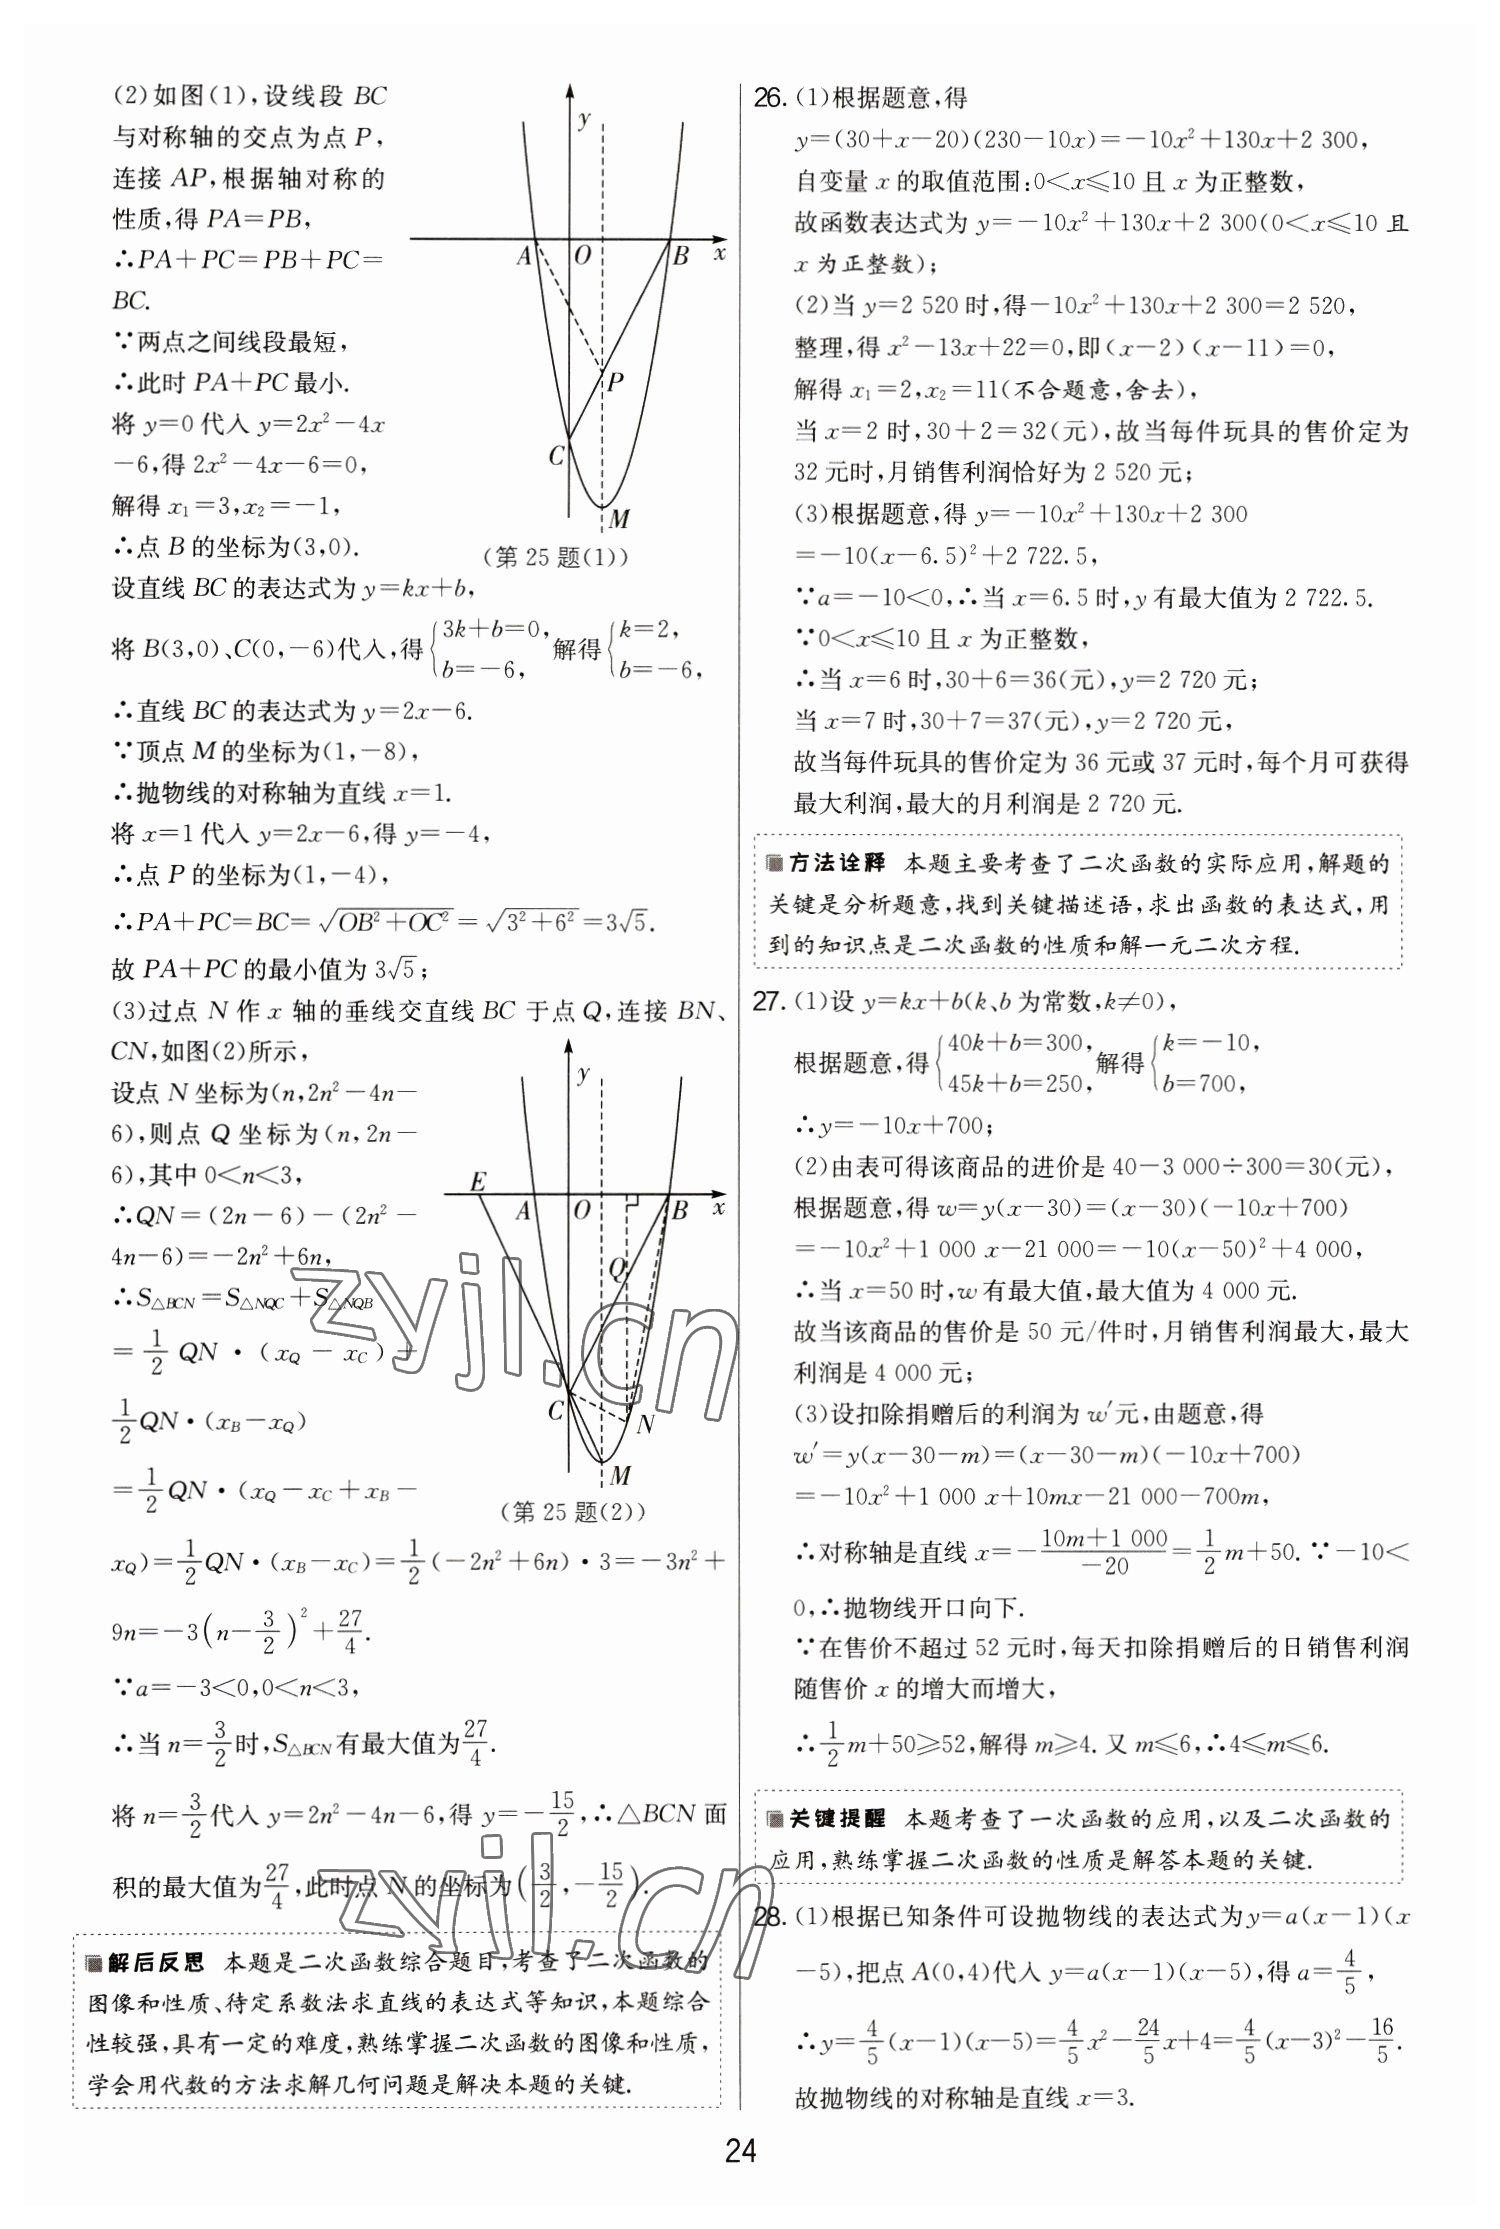 (2)如图(1),设线段 BC
与对称轴的交点为点 P,
连接 AP,根据轴对称的
性质,得 PA=PB,
∴PA+PC=PB+PC=
BC.
∵两点之间线段最短,
∴此时 PA+PC 最小.
将 y=0 代入 y=2x²-4x
-6,得 2x²-4x-6=0,
解得 x₁=3,x₂=-1,
∴点 B 的坐标为(3,0).
y
A
O
B
x
P
C
M
(第 25 题(1))
设直线 BC 的表达式为 y=kx+b,
将 B(3,0)、C(0,-6)代入,得{3k+b=0, b=-6, 解得{k=2, b=-6,
∴直线 BC 的表达式为 y=2x-6.
∵顶点 M 的坐标为(1,-8),
∴抛物线的对称轴为直线 x=1.
将 x=1 代入 y=2x-6,得 y=-4,
∴点 P 的坐标为(1,-4),
∴PA+PC=BC=√(OB²+OC²)=√(3²+6²)=3√5.
故 PA+PC 的最小值为 3√5;
(3)过点 N 作 x 轴的垂线交直线 BC 于点 Q,连接 BN、
CN,如图(2)所示,
设点 N 坐标为(n,2n²-4n-
6),则点 Q 坐标为(n,2n-
6),其中 0<n<3,
∴QN=(2n-6)-(2n²-
4n-6)=-2n²+6n,
∴S△BCN=S△NQC+S△NQB
=1/2 QN·(xQ-xC)+
1/2 QN·(xB-xQ)
=1/2 QN·(xQ-xC+xB-
y
E
A
O
B
x
Q
C
N
M
(第 25 题(2))
xQ)=1/2 QN·(xB-xC)=1/2(-2n²+6n)·3=-3n²+
9n=-3(n-3/2)²+27/4.
∵a=-3<0,0<n<3,
∴当 n=3/2时,S△BCN有最大值为27/4.
将 n=3/2代入 y=2n²-4n-6,得 y=-15/2,∴△BCN 面
积的最大值为27/4,此时点 N 的坐标为(3/2,-15/2).
解后反思 本题是二次函数综合题目,考查了二次函数的
图像和性质、待定系数法求直线的表达式等知识,本题综合
性较强,具有一定的难度,熟练掌握二次函数的图像和性质,
学会用代数的方法求解几何问题是解决本题的关键.
26. (1)根据题意,得
y=(30+x-20)(230-10x)=-10x²+130x+2 300,
自变量 x 的取值范围:0<x≤10 且 x 为正整数,
故函数表达式为 y=-10x²+130x+2 300(0<x≤10 且
x 为正整数);
(2)当 y=2 520 时,得-10x²+130x+2 300=2 520,
整理,得 x²-13x+22=0,即(x-2)(x-11)=0,
解得 x₁=2,x₂=11(不合题意,舍去),
当 x=2 时,30+2=32(元),故当每件玩具的售价定为
32 元时,月销售利润恰好为 2 520 元;
(3)根据题意,得 y=-10x²+130x+2 300
=-10(x-6.5)²+2 722.5,
∵a=-10<0,∴当 x=6.5 时,y 有最大值为 2 722.5.
∵0<x≤10 且 x 为正整数,
∴当 x=6 时,30+6=36(元),y=2 720 元;
当 x=7 时,30+7=37(元),y=2 720 元,
故当每件玩具的售价定为 36 元或 37 元时,每个月可获得
最大利润,最大的月利润是 2 720 元.
方法诠释 本题主要考查了二次函数的实际应用,解题的
关键是分析题意,找到关键描述语,求出函数的表达式,用
到的知识点是二次函数的性质和解一元二次方程.
27. (1)设 y=kx+b(k、b 为常数,k≠0),
根据题意,得{40k+b=300, 45k+b=250, 解得{k=-10, b=700,
∴y=-10x+700;
(2)由表可得该商品的进价是 40-3 000÷300=30(元),
根据题意,得 w=y(x-30)=(x-30)(-10x+700)
=-10x²+1 000 x-21 000=-10(x-50)²+4 000,
∴当 x=50 时,w 有最大值,最大值为 4 000 元.
故当该商品的售价是 50 元/件时,月销售利润最大,最大
利润是 4 000 元;
(3)设扣除捐赠后的利润为 w′元,由题意,得
w′=y(x-30-m)=(x-30-m)(-10x+700)
=-10x²+1 000 x+10mx-21 000-700m,
∴对称轴是直线 x=-(10m+1 000)/(-20)=1/2 m+50. ∵-10<
0,∴抛物线开口向下.
∵在售价不超过 52 元时,每天扣除捐赠后的日销售利润
随售价 x 的增大而增大,
∴1/2 m+50≥52,解得 m≥4. 又 m≤6,∴4≤m≤6.
关键提醒 本题考查了一次函数的应用,以及二次函数的
应用,熟练掌握二次函数的性质是解答本题的关键.
28. (1)根据已知条件可设抛物线的表达式为y=a(x-1)(x
-5),把点 A(0,4)代入 y=a(x-1)(x-5),得 a=4/5,
∴y=4/5(x-1)(x-5)=4/5x²-24/5x+4=4/5(x-3)²-16/5.
故抛物线的对称轴是直线 x=3.
24
zyjl.cn
zyjl.cn